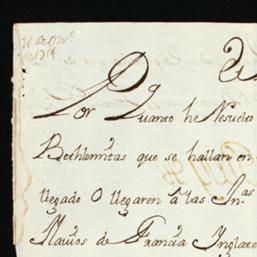 Por Quanto he Resuelto
Bethlemitas que se hallan en
llegado O llegaren â las Ins
Nauios de Francia Inglate